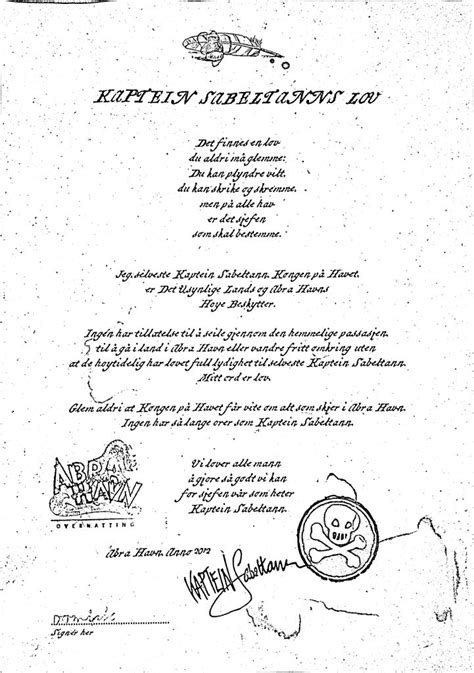 KAPTEIN SABELTANNS LOV
Det finnes en lov
du aldri må glemme:
Du kan plyndre vilt,
du kan skrike og skremme,
men på alle hav
er det sjefen
som skal bestemme.
Jeg, selveste Kaptein Sabeltann, Kongen på Havet,
er Det Usynlige Lands og Abra Havns
Høye Beskytter.
Ingen har tillatelse til å seile gjennom den hemmelige passasjen,
til å gå i land i Abra Havn eller vandre fritt omkring uten
at de høytidelig har lovet full lydighet til selveste Kaptein Sabeltann.
Mitt ord er lov.
Glem aldri at Kongen på Havet får vite om alt som skjer i Abra Havn.
Ingen har så lange ører som Kaptein Sabeltann.
Vi lover alle mann
å gjøre så godt vi kan
for sjefen vår som heter
Kaptein Sabeltann.
ABRA
HAVN
OVERNATTING
Abra Havn, Anno 2012
KAPTEIN Sabeltann
Signér her